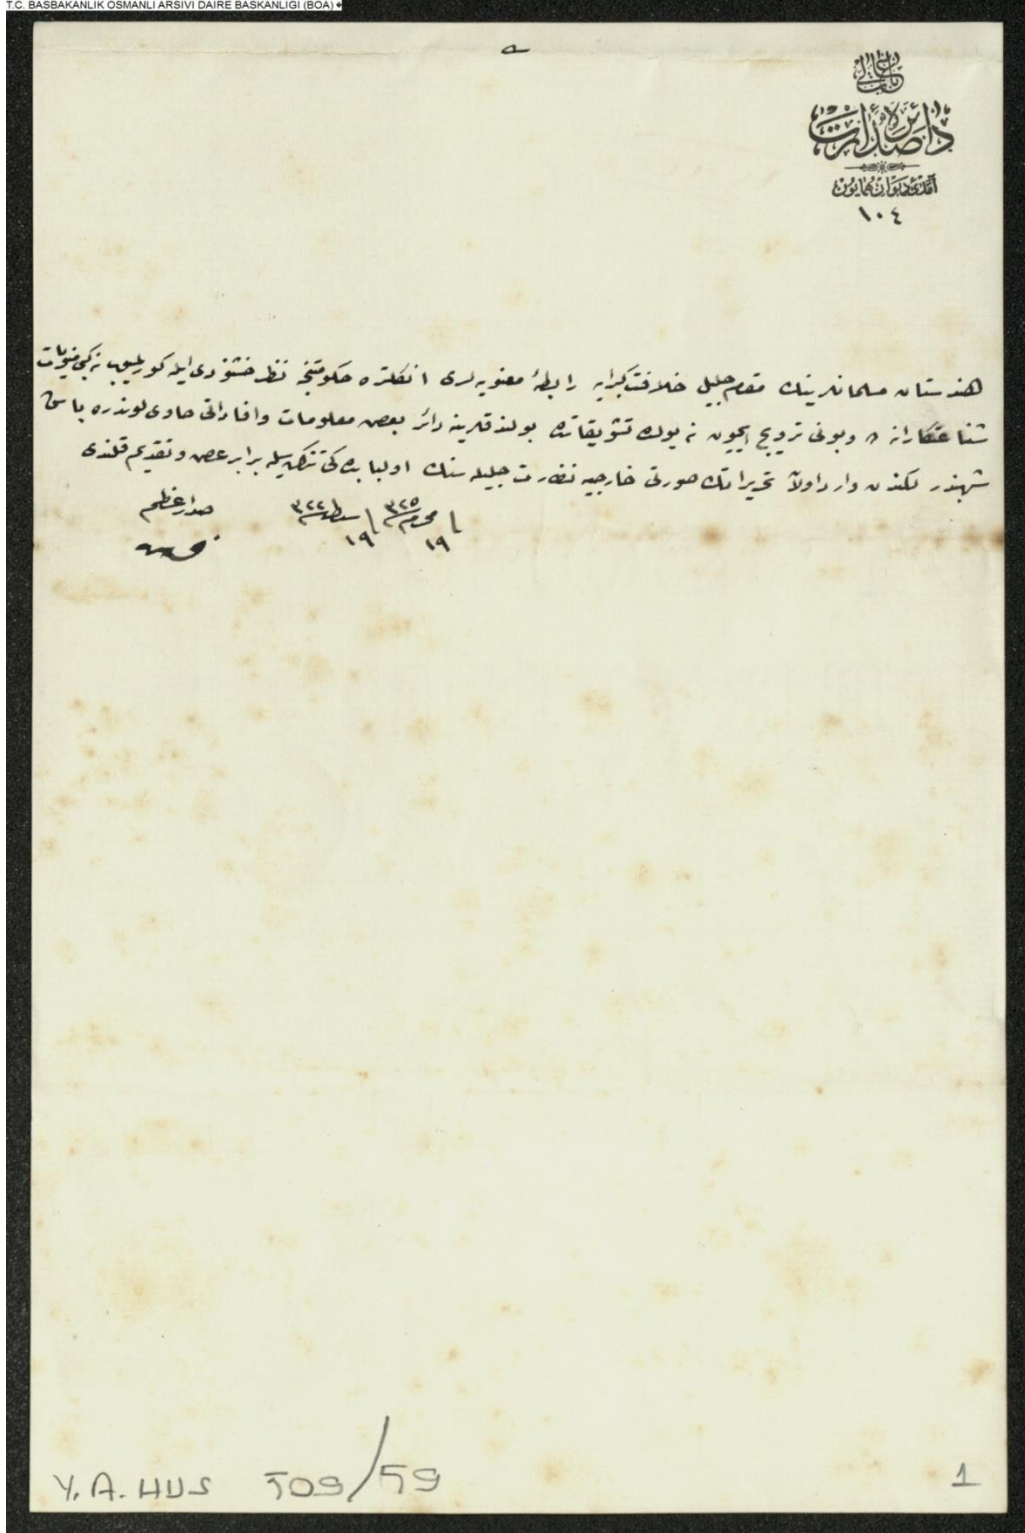 T.C. BASBAKANLIK OSMANLI ARSIVI DAIRE BASKANLIGI (BOA)
باب عالی
دائرهٔ صدارت
آمدئ دیوان همایون
١٠٤
هندستان مسلمانلرینك مقام جلیل خلافت کبرایه رابطهٔ معنویه لری انکلتره حکومتنجه نظر خشنودی ایله کورلمیوب نه کبی
شناعتکارانه و بونی ترویج ایچون نه یولده تشویقاتده بولندقلرینه دائر بعض معلومات و افاداتی حاوی لوندره باش
شهبندرلکندن وارد اولان تحریراتك صورتی خارجیه نظارت جلیله سنك اولبابده کی تذکره سیله برابر عرض و تقدیم قلندی
فی ١٩ محرم سنه ٣٢٥ فی ١٩ شباط سنه ٣٢٢
صدر اعظم
Y.A.HUS 509/59
1